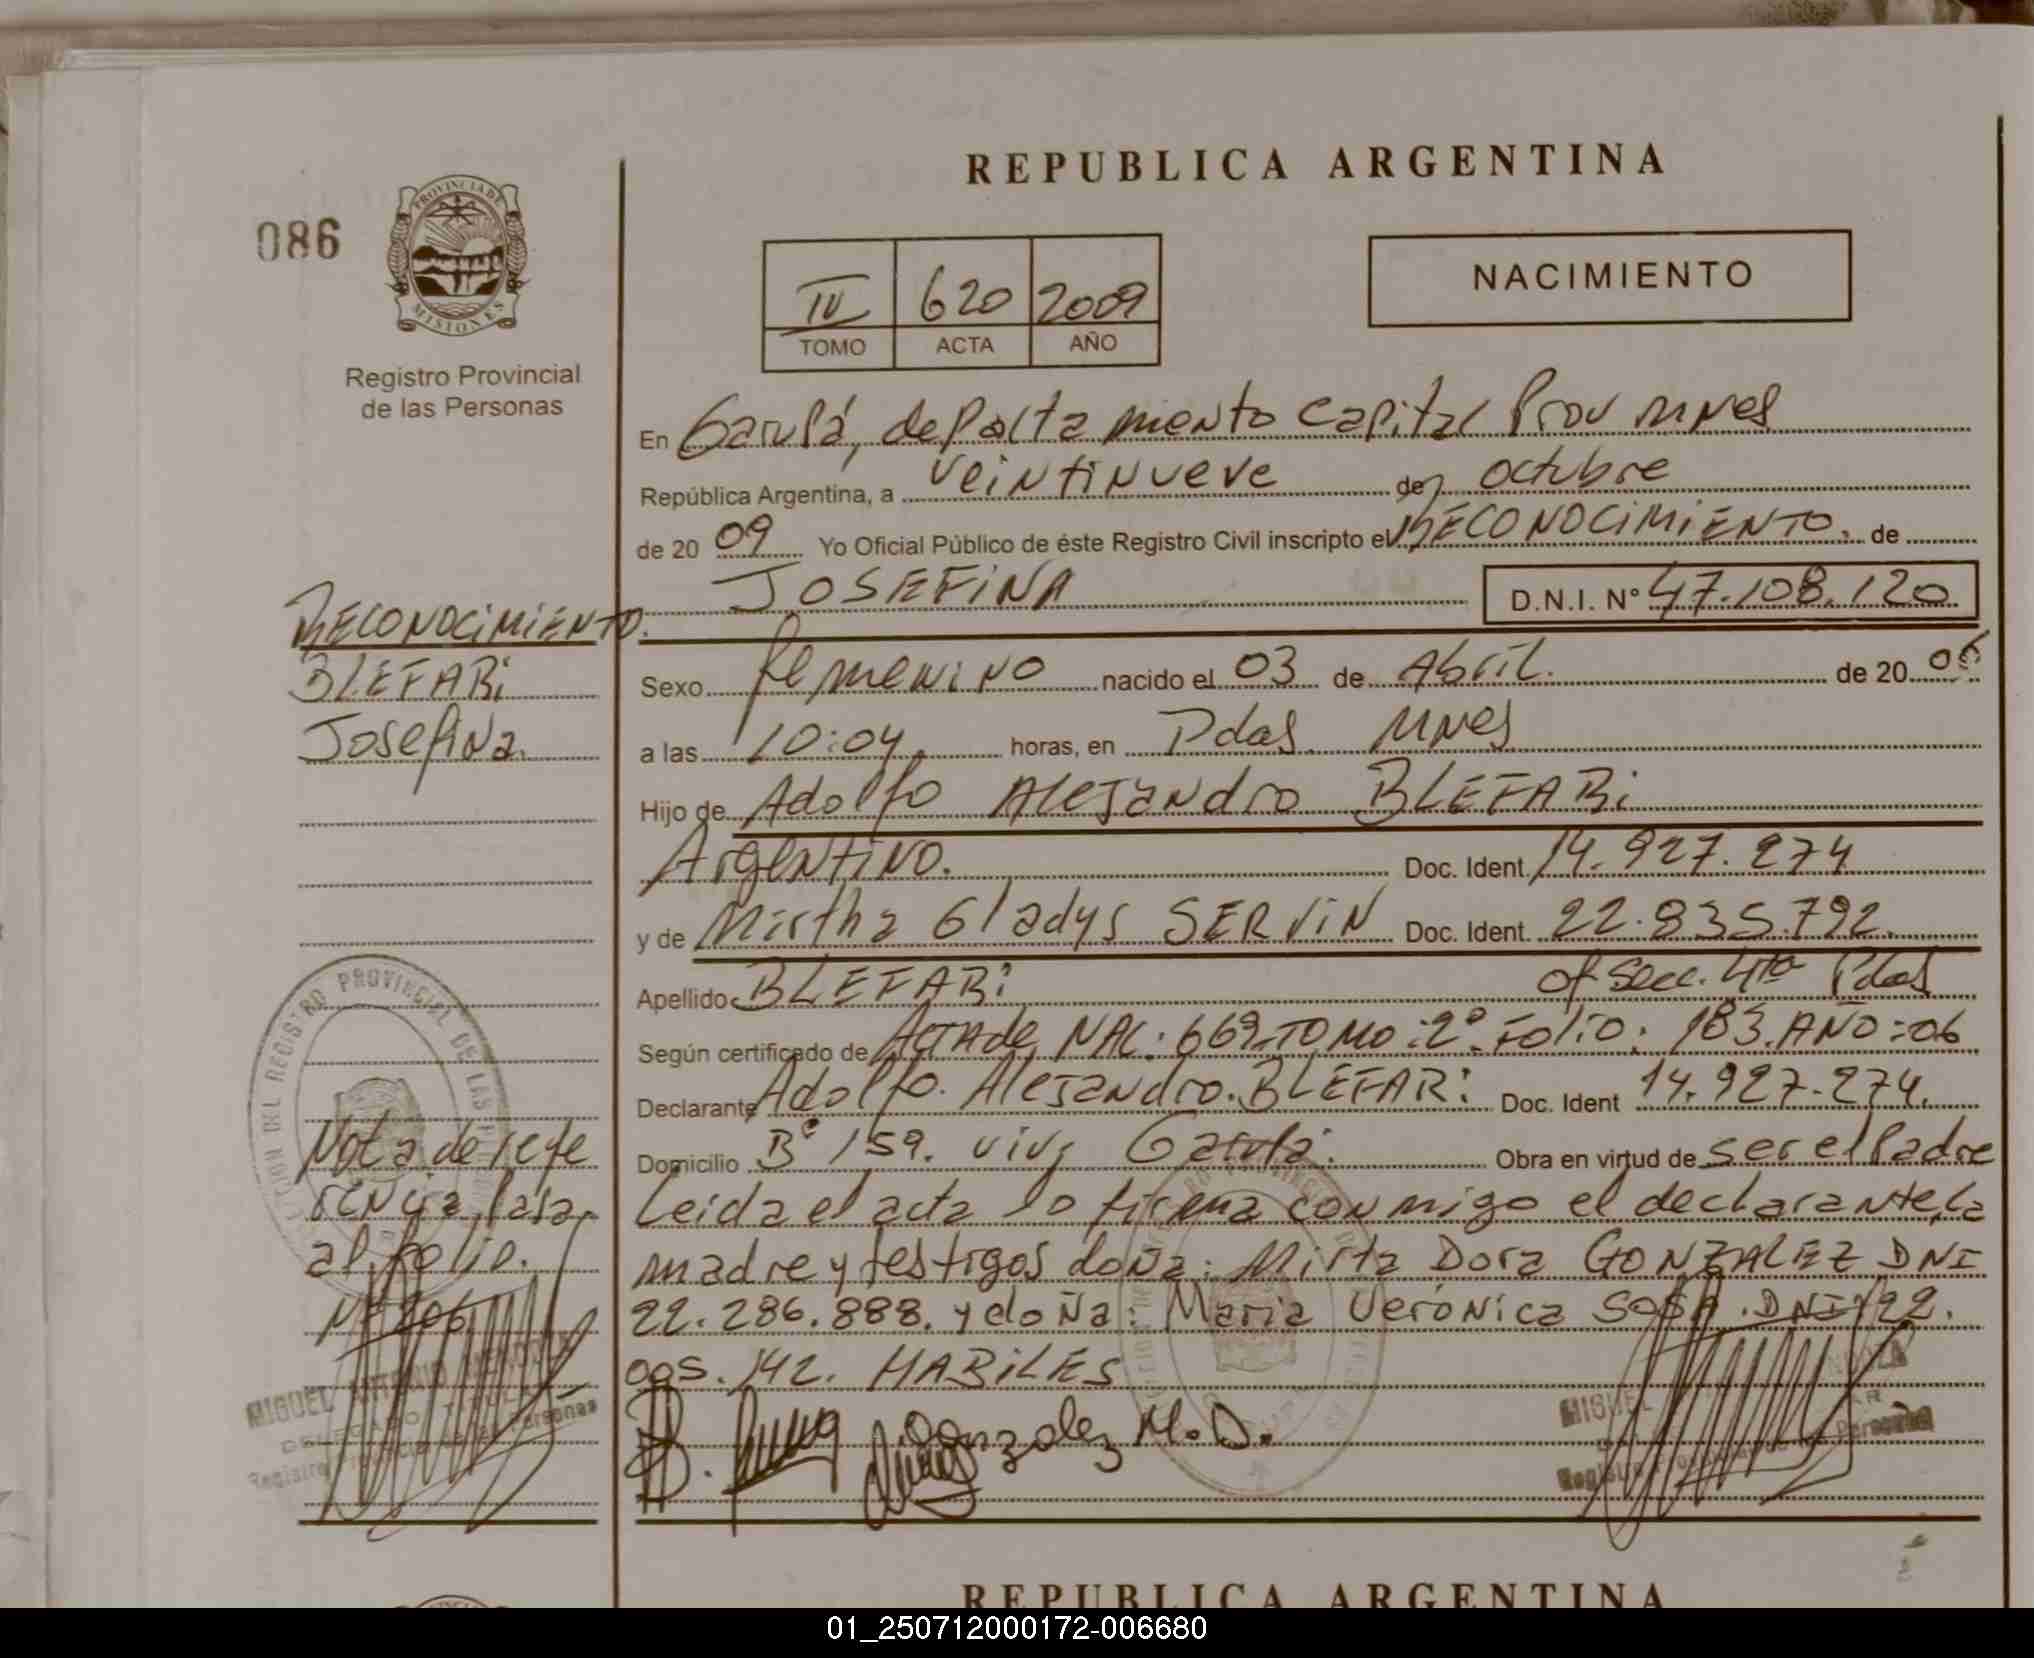 REPUBLICA ARGENTINA
086
PROVINCIA DE
MISIONES
Registro Provincial
de las Personas
NACIMIENTO
IV 620 2009
TOMO ACTA AÑO
En Garupá, departamento Capital Prov Mnes
República Argentina, a veintinueve de octubre
de 20 09 Yo Oficial Público de éste Registro Civil inscripto el RECONOCIMIENTO. de
JOSEFINA D.N.I. N° 47.108.120
RECONOCIMIENTO.
BLEFARI
Josefina.
Sexo femenino nacido el 03 de Abril. de 20 06
a las 10:04. horas, en Pdas. Mnes
Hijo de Adolfo Alejandro BLEFARI
Argentino. Doc. Ident. 14.927.274
y de Mirtha Gladys SERVIN Doc. Ident. 22.835.792.
Apellido BLEFARI of Secc. 4ta Pdas
Según certificado de Acta de NAC: 669-TOMO:2° FOLIO: 183. AÑO:06
Declarante Adolfo. Alejandro. BLEFARI Doc. Ident 14.927.274.
Domicilio B° 159. viv, Garupá. Obra en virtud de ser el Padre
Leída el acta lo firma conmigo el declarante, la
madre y testigos doña: Mirta Dora GONZALEZ DNI
22.286.888. y doña: Maria Verónica SOSA. DNI 22.
005.142. HABILES
Gonzalez M.D.
Nota de refe
rencia pasa
al folio.
N° 206
MIGUEL ANTONIO
DELEGADO TITULAR
Registro Provincial de las Personas
MIGUEL
Registro Provincial de las Personas
REPUBLICA ARGENTINA
01_250712000172-006680